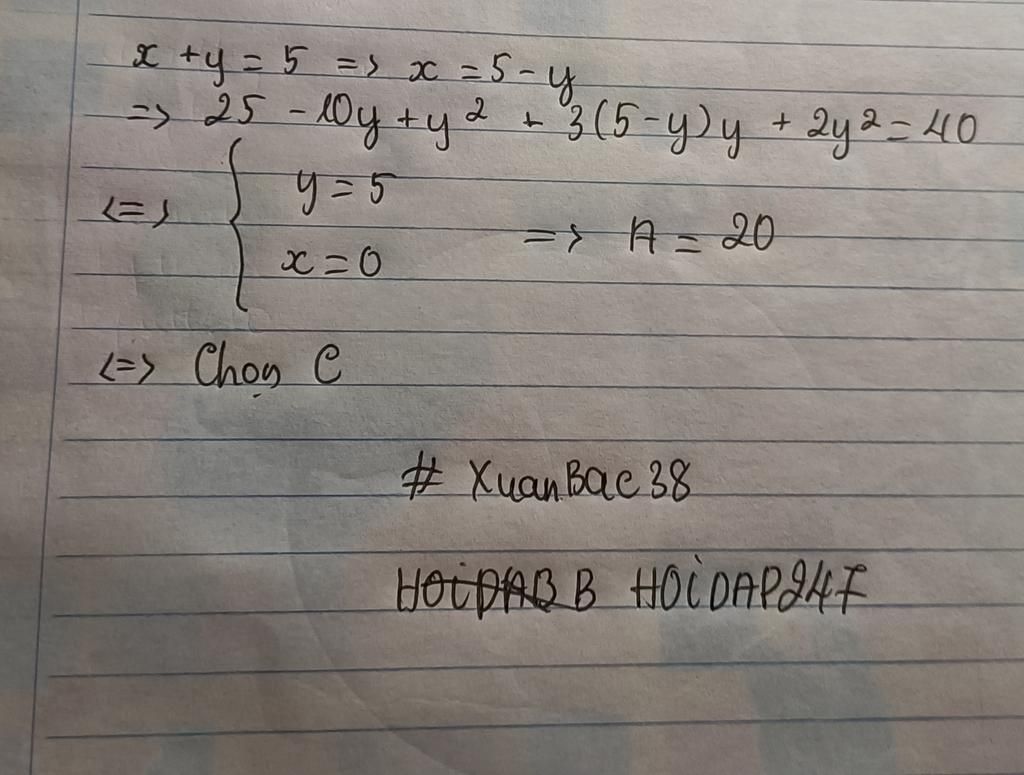 x + y = 5 => x = 5 - y
=> 25 - 10y + y² + 3(5 - y)y + 2y² = 40
<=> { y = 5
x = 0 => A = 20
<=> Chọn C
# XuanBac38
HOiDAB B HOiDAP247